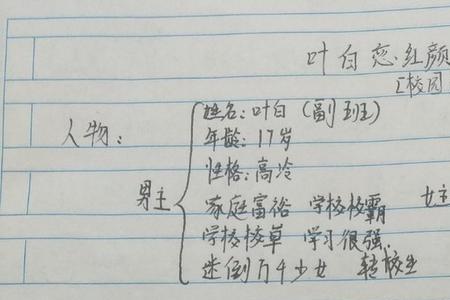 叶白恋红颜
[校园
人物：
男主
姓名：叶白（副班）
年龄：17岁
性格：高冷
家庭富裕 学校校霸
女主
学校校草 学习很强.
迷倒万千少女 转校生